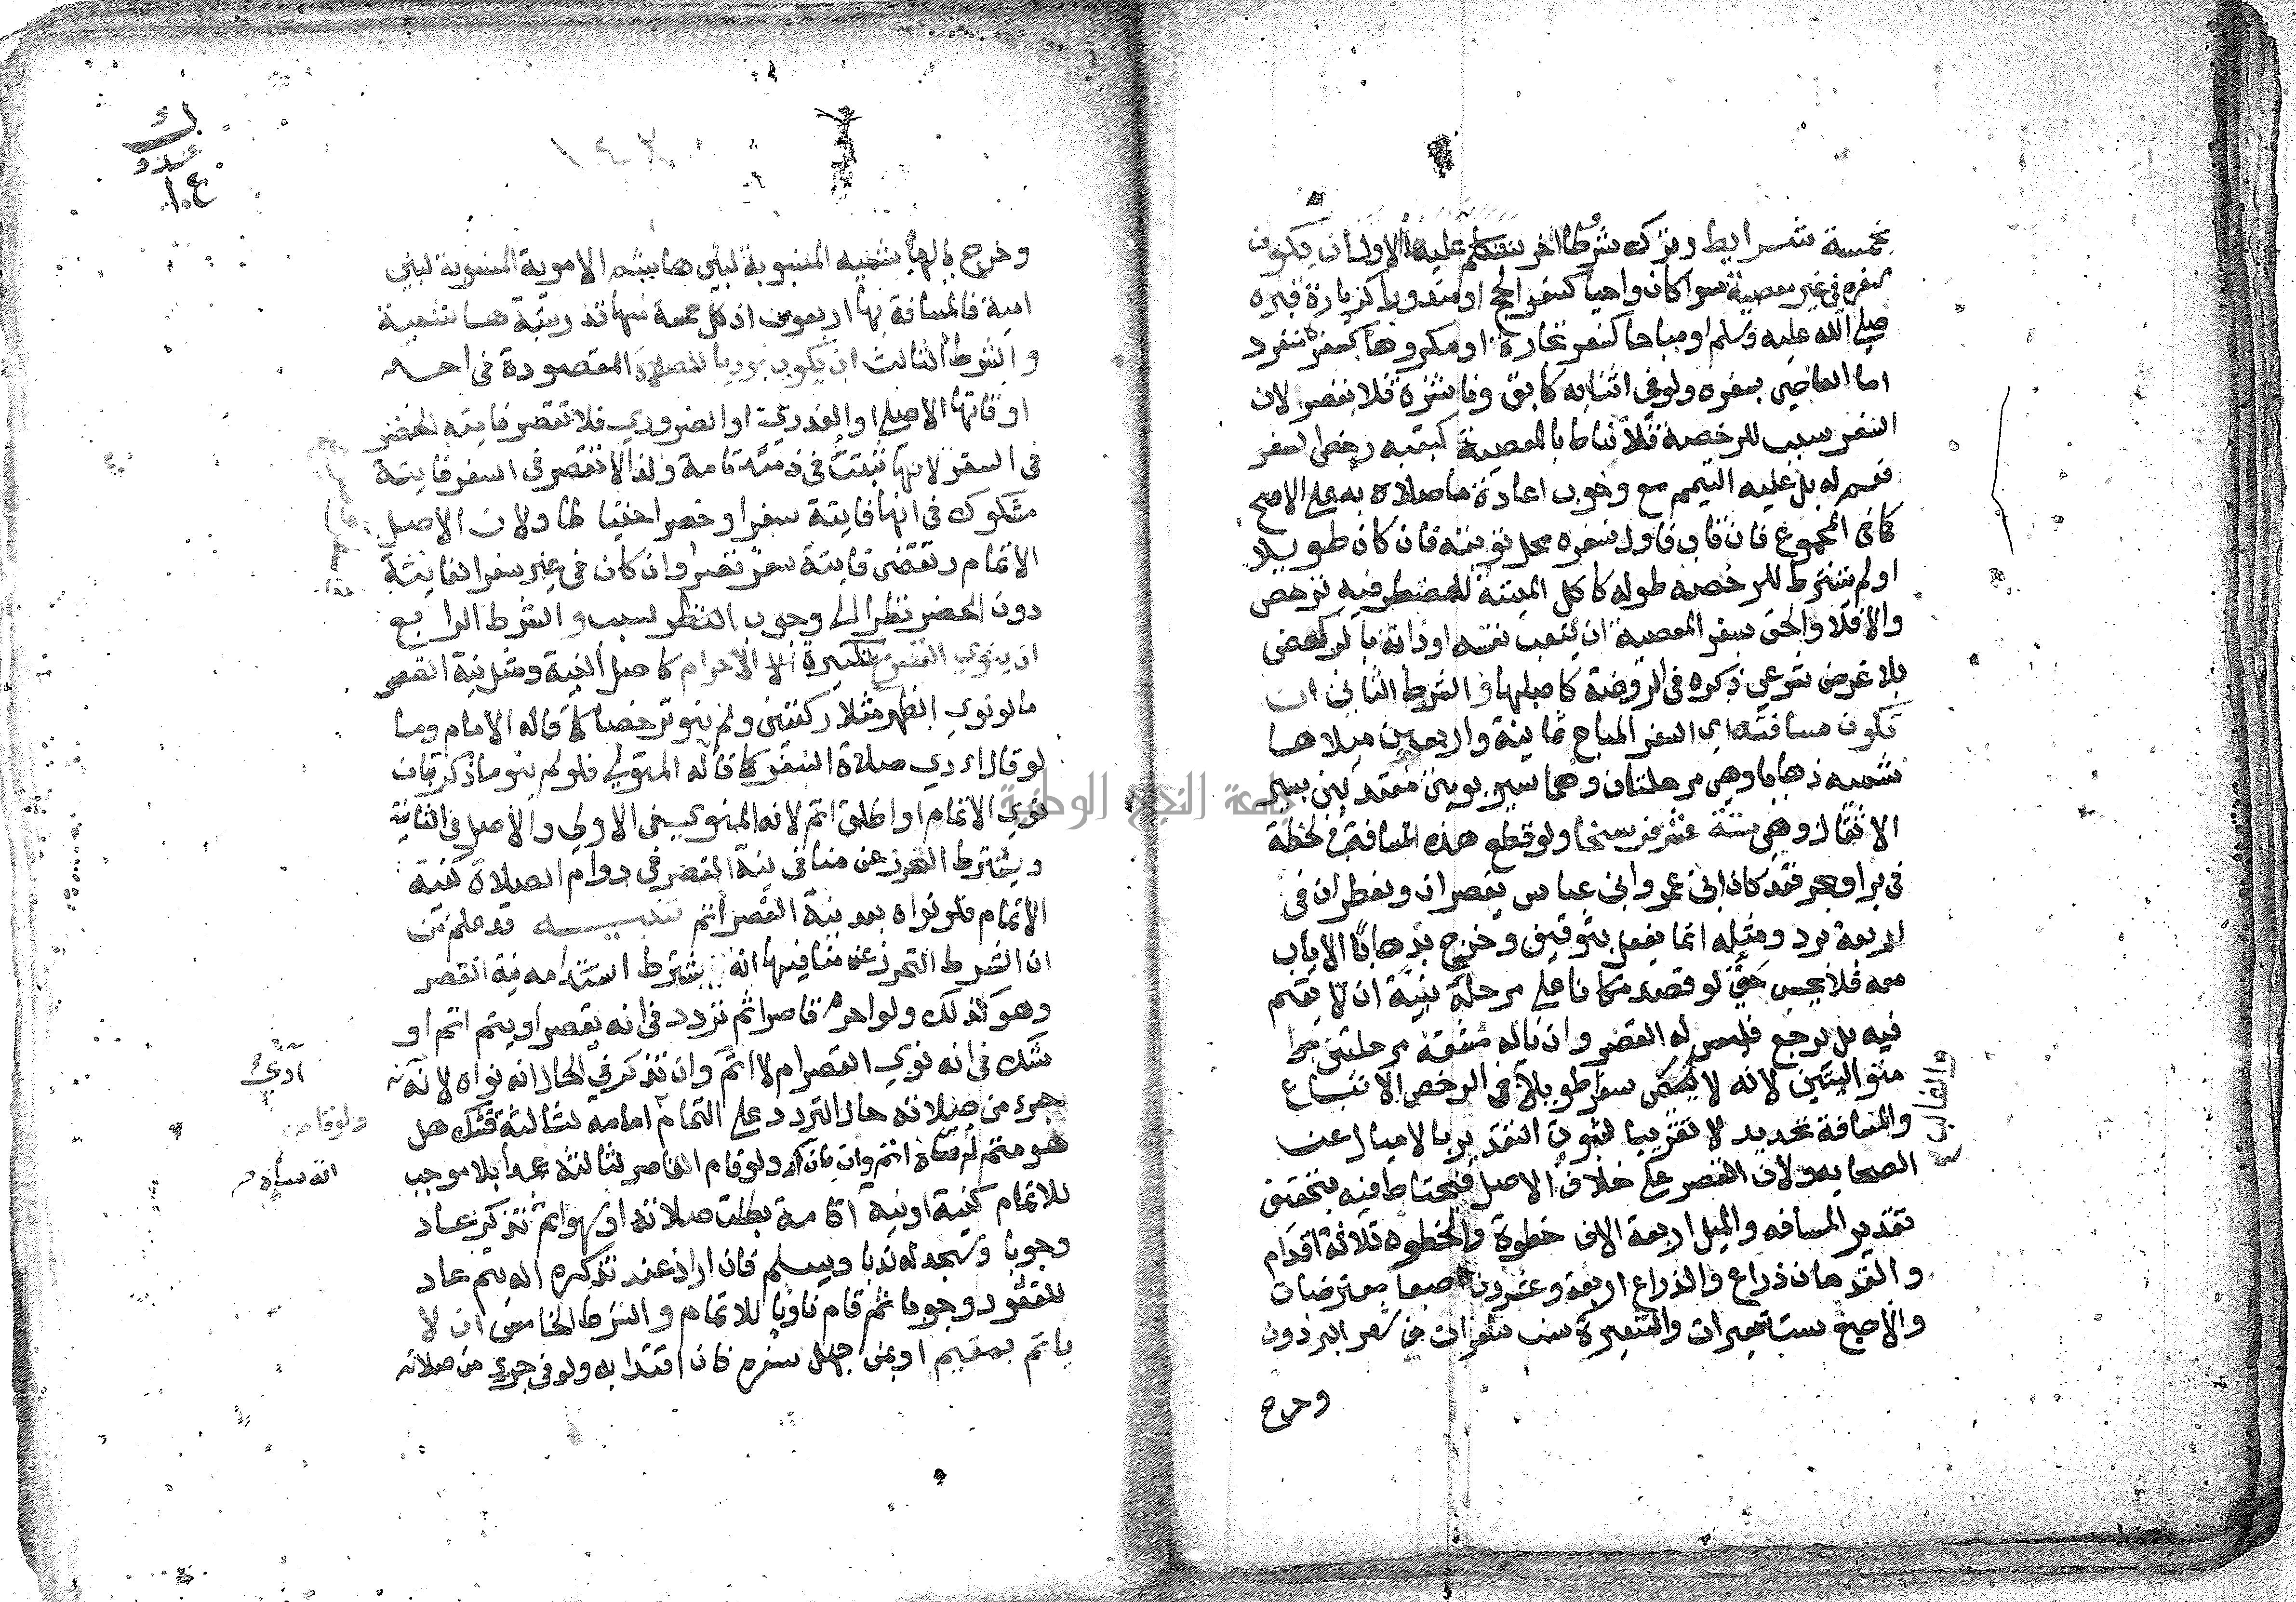 بخمسة شرايط وترك شروطا اخر نتكلم عليها الاول ان يكون
سفره في غير معصية سوا كان واجبا كسفر الحج او مندوبا كزيارة قبره
صلى الله عليه وسلم او مباحا كسفر تجارة او مكروها كسفر منفرد
اما العاصي بسفره ولو في اثنايه كابق وناشزة فلا يقصر لان
السفر سبب للرخصة فلا تناط بالمعصية كبقيه رخص السفر
نعم له بل عليه التيمم مع وجوب اعادة ما صلاه به على الاصح
كما في المجموع فان تاب فاول سفره محل توبته فان كان طويلا
او لم يشترط للرخصه طوله كاكل الميتة للمضطر فيه ترخص
والا فلا والحق بسفر المعصية ان يتعب نفسه او دابته بالركض
بلا غرض شرعي ذكره في الروضة كاصلها والشرط الثاني ان
تكون مسافته اي السفر المباح ثمانية واربعين ميلا ها
شميه ذهابا وهي مرحلتان وهما سير يومين معتدلين بسير
الاثقال وهي ستة عشر فرسخا ولو قطع هذه المسافة في لحظة
في بر او بحر فقد كان ابن عمر وابن عباس يقصران ويفطران في
اربعة برد ومثله انما يفعل بتوقيف وخرج بذهابا الاياب
معه فلا يحسب حتى لو قصد مكانا على مرحلة بنية ان لا يقيم
فيه بل يرجع فليس له القصر وان ناله مشقة مرحلتين
متواليتين لانه لا يسمى سفرا طويلا والغالب في الرخص الاتباع
والمسافة تحديد لا تقريب لثبوت التقدير بالاميال عن
الصحابه ولان القصر على خلاف الاصل فيحتاط فيه بتحقيق
تقدير المسافه والميل اربعة الاف خطوة والخطوه ثلاثة اقدام
والقدمان ذراع والذراع اربعة وعشرون اصبعا معترضات
والاصبع ست شعيرات والشعيرة ست شعرات من شعر البرذون
وخرج
١٤٣
وخرج بالهاشميه المنسوبة لبني هاشم الاموية المنسوبة لبني
امية فالمسافة بها اربعون اذ كل خمسة منها قدر ستة هاشمية
والشرط الثالث ان يكون موديا للصلاة المقصودة في احد
اوقاتها الاصلي او العذري او الضروري فلا تقصر فايتة الحضر
في السفر لانها ثبتت في ذمته تامة ولذا لا تقصر في السفر فايتة
مشكوك في انها فايتة سفر او حضر احتياطا ولان الاصل
الاتمام وتقضى فايتة سفر قصر وان كان في غير سفر الفايتة
دون الحضر نظرا الى وجوب النظر لسبب والشرط الرابع
ان ينوي القصر مع تكبيرة الاحرام كاصل النية ومثل نية القصر
ما لو نوي الظهر مثلا ركعتين ولم ينو ترخصا كما قاله الامام وما
لو قال اودي صلاة السفر كما قاله المتولي فلو لم ينو ما ذكر بان
نوي الاتمام او اطلق اتم لانه المنوي في الاولي والاصل في الثانية
ويشترط التحرز عن منافي نية القصر في دوام الصلاة كنية
الاتمام فلو نواه بعد نية القصر اتم تنبيه قد علم من
ان الشرط التحرز عن منافيها انه يشترط استدامه نية القصر
وهو كذلك ولو احرم قاصرا ثم تردد في انه يقصر او يتم اتم او
شك في انه نوي القصر ام لا اتم وان تذكر في الحال انه نواه لانه
جزء من صلاته حال التردد على التمام امامه لثالثة فشك هل
هو متم ام ساه اتم وان بان ولو قام القاصر لثالثة عمدا بلا موجب
للاتمام كنية او نية اقامة بطلت صلاته او سهوا ثم تذكر عاد
وجوبا وسجد له ندبا ويسلم فان اراد عند تذكره ان يتم عاد
للقعود وجوبا ثم قام ناويا للاتمام والشرط الخامس ان لا
ياتم بمقيم او بمن جهل سفره فان اقتدا به ولو في جزء من صلاته
ولو قام
انه ساه
جامعة النجاح الوطنية